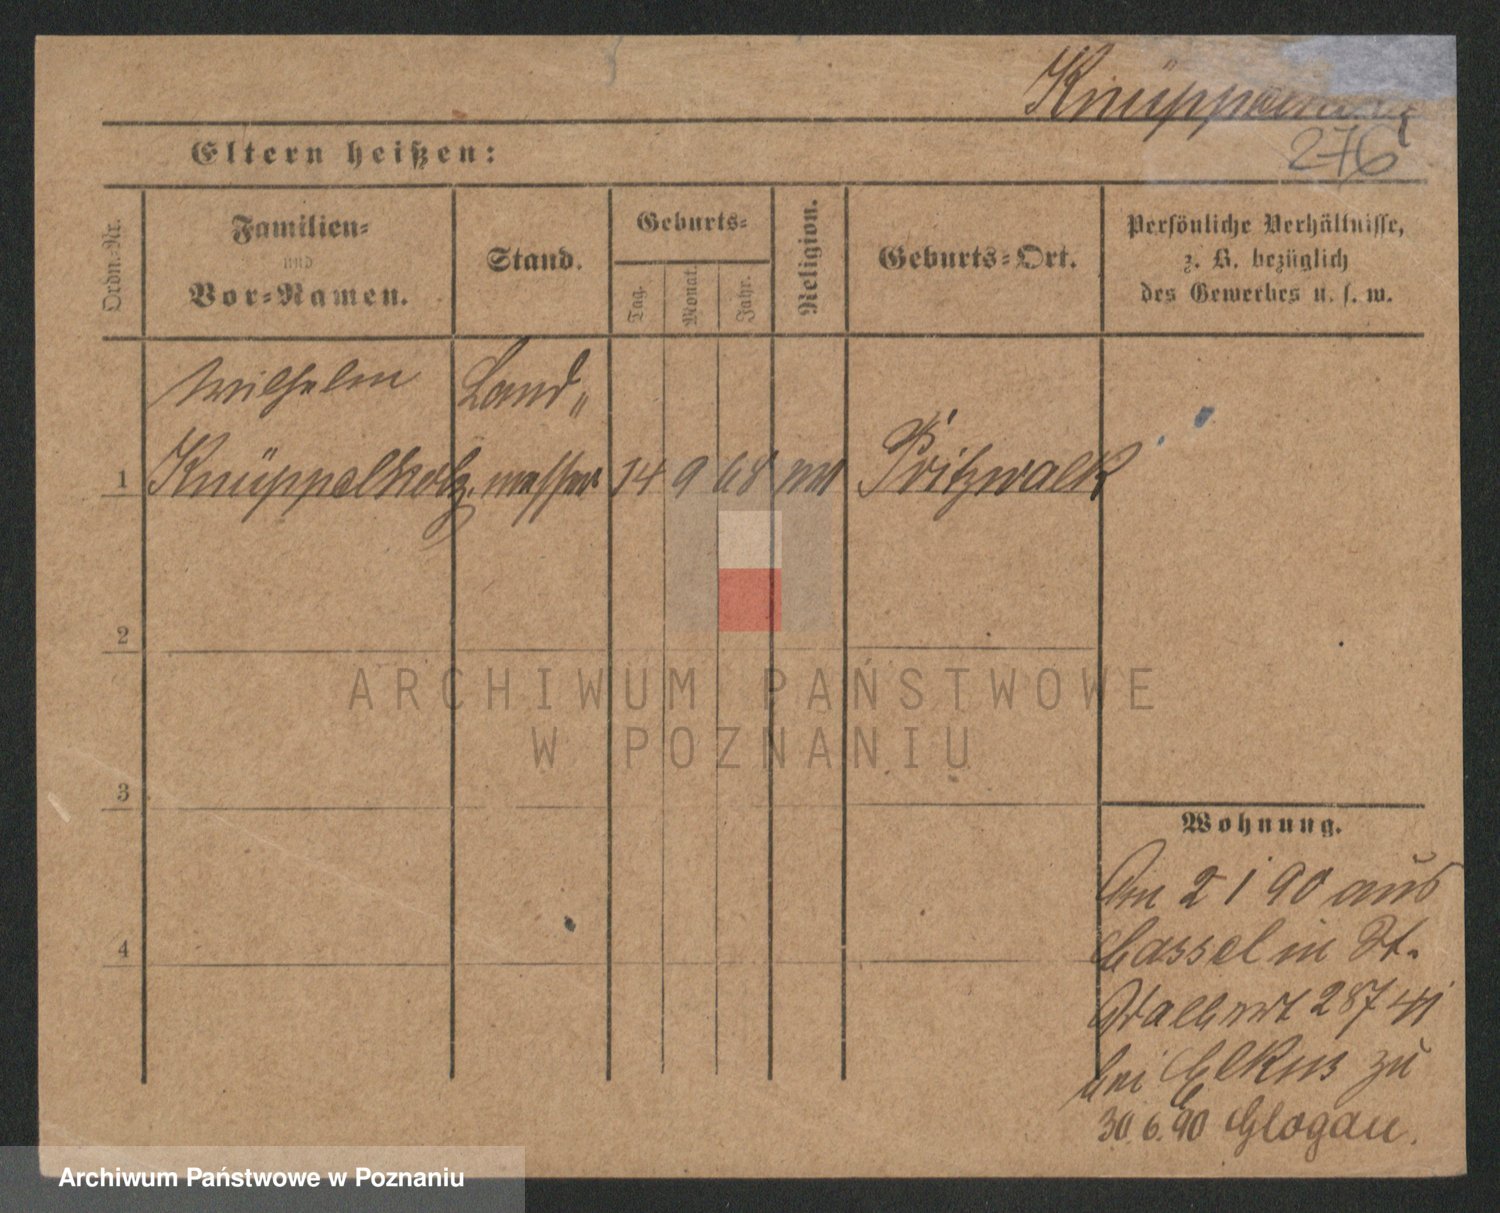 276
Eltern heißen:
Ordn.-Nr.
Familien-
und
Vor-Namen.
Stand.
Geburts-
Tag.
Monat.
Jahr.
Religion.
Geburts-Ort.
Persönliche Verhältnisse,
z. B. bezüglich
des Gewerbes u. s. w.
Wilhelm Land„
1 Knüppelholz. messer 14 9 68 Pritzwalk
2
3
4
ARCHIWUM PAŃSTWOWE
W POZNANIU
Wohnung.
Am 2 1 90 aus
Cassel in St.
Adalbert 28
bei Elkus zu
30.6.90 Glogau.
Archiwum Państwowe w Poznaniu